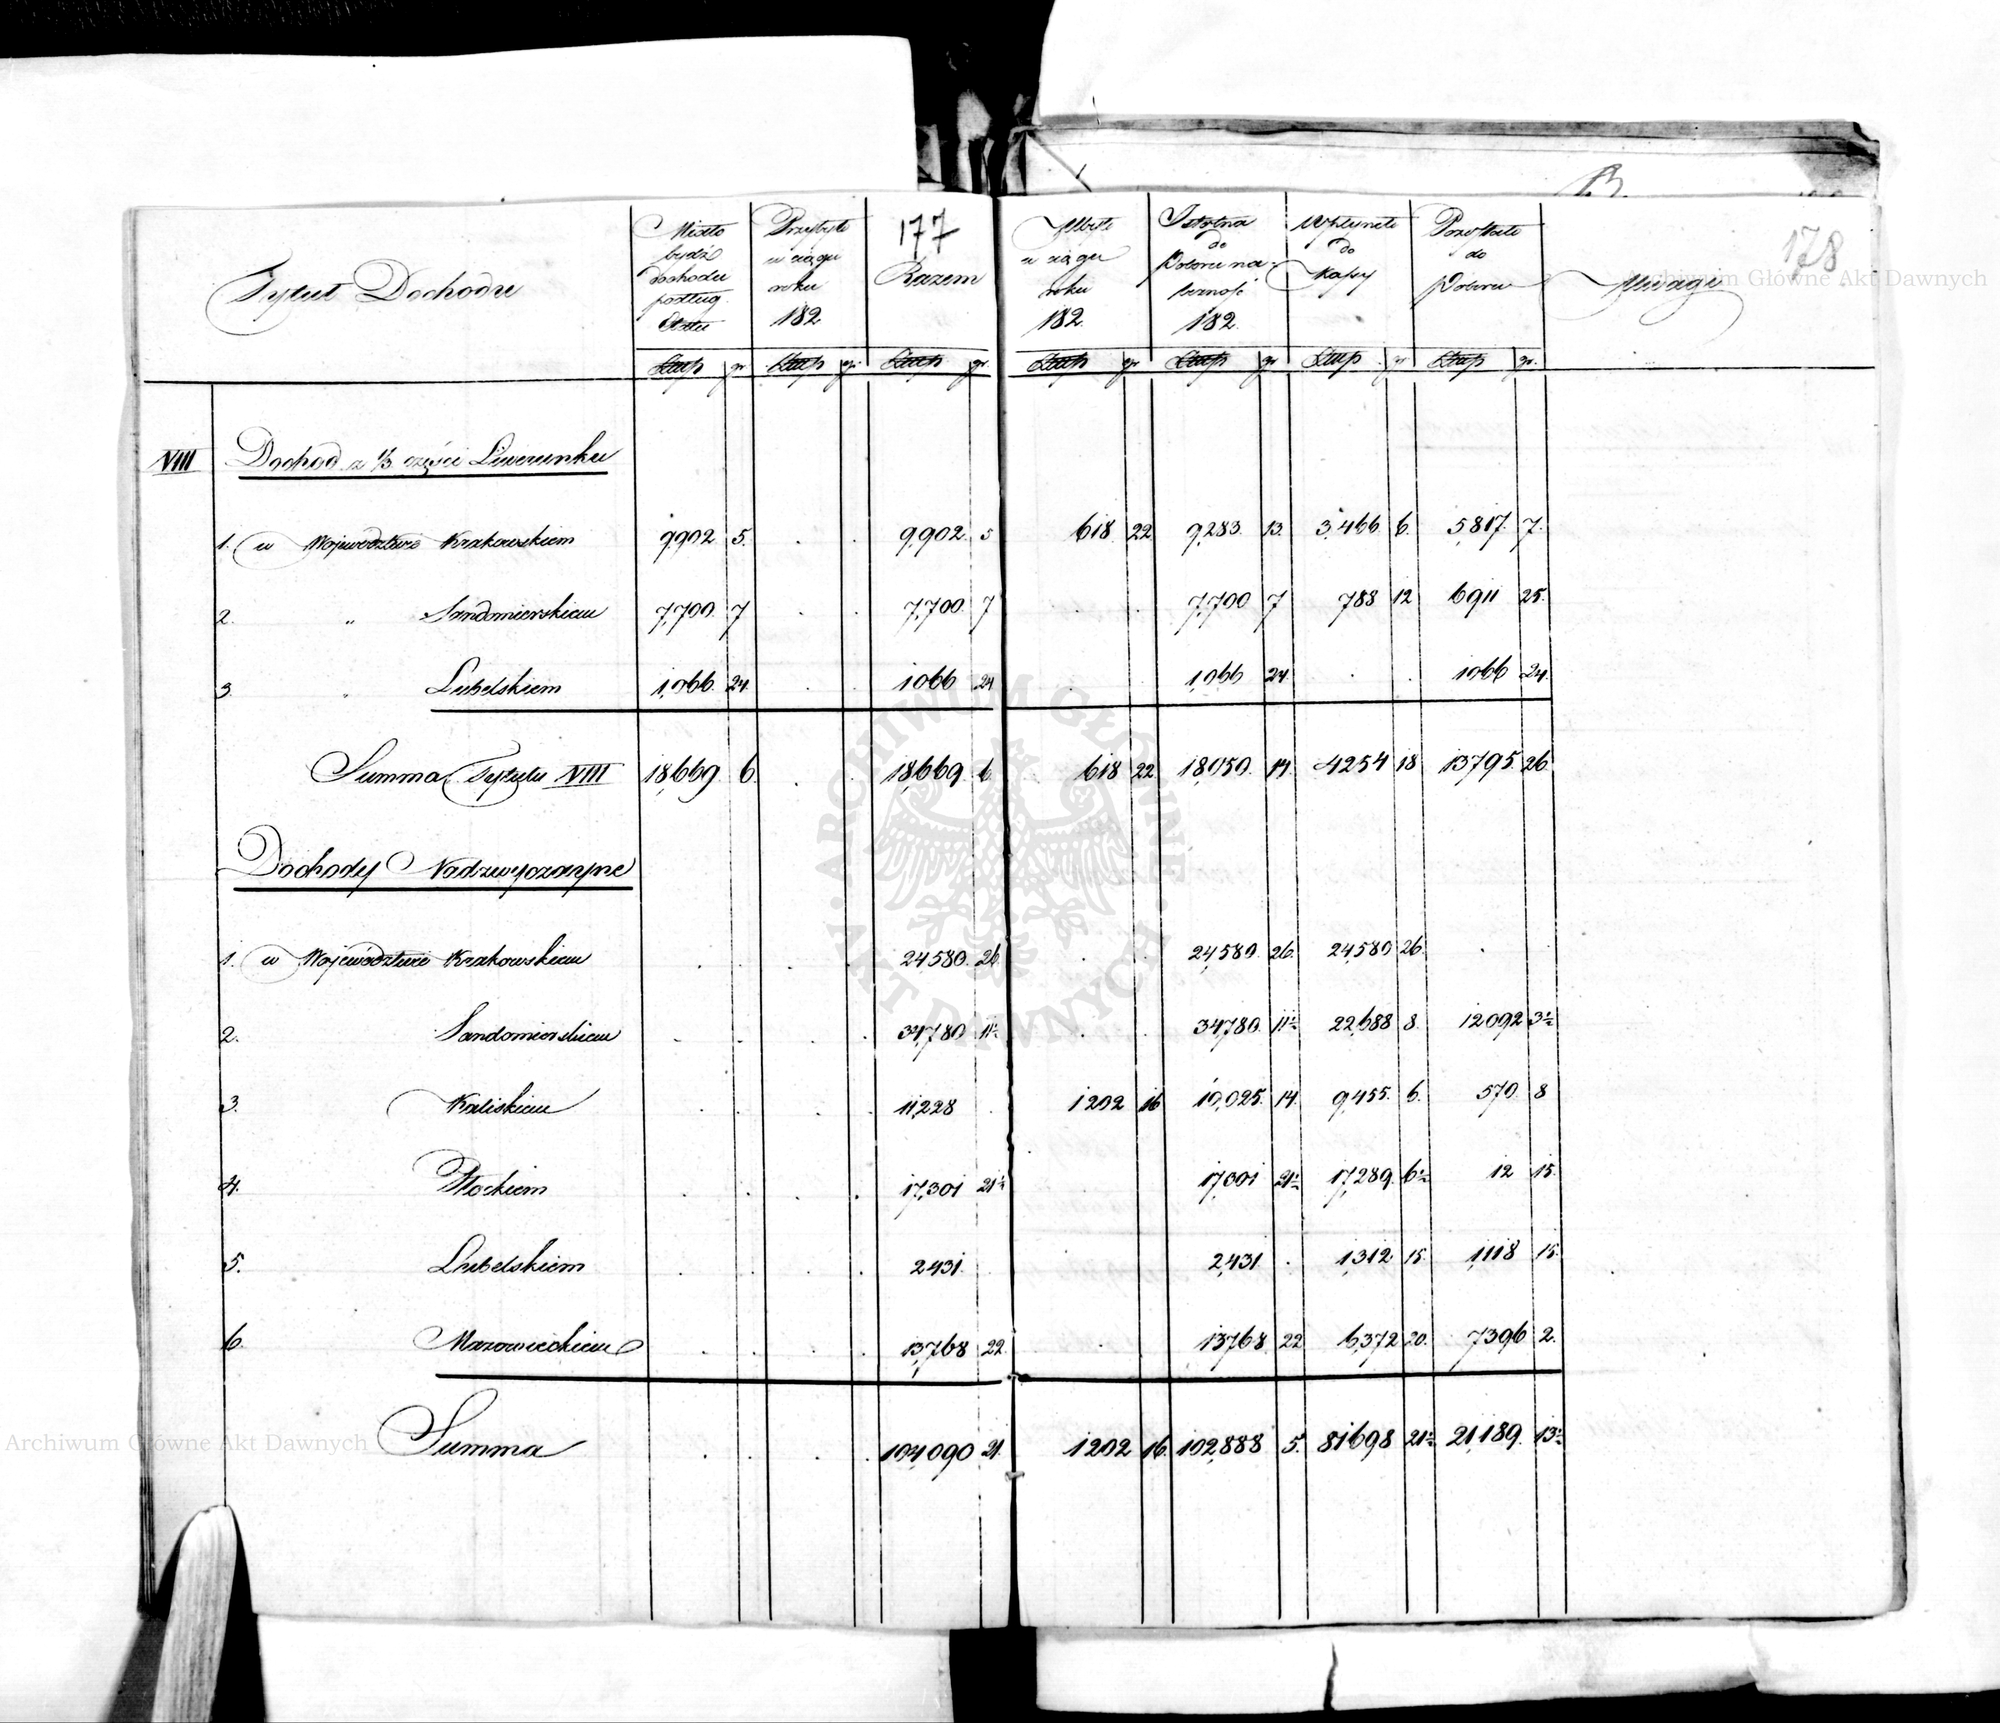 177
178
Tytuł Dochodu | Miało bydź dochodu podług Etatu | Przybyło w ciągu roku 182 | Razem | Ubyło w ciągu roku 182 | Istotna do Poboru należność 182 | Wpłynęło do Kassy | Pozostało do Poboru | Uwagi
Złtup gr | Złtup gr | Złtup gr | Złtup gr | Złtup gr | Złtup gr | Złtup gr
VIII Dochod z 1/3 części Liwerunku
1. w Województwie Krakowskiem 9,902 5. . . 9,902. 5 618 22 9,283. 13. 3,466 6. 5,817. 7.
2. „ Sandomierskiem 7,700. 7 . . 7,700. 7 . . 7,700 7 788 12 6911 25.
3. „ Lubelskiem 1,066. 24. . . 1066 24 . . 1,066 24 . . 1066 24.
Summa Tytułu VIII 18,669. 6. . . 18,669. 6. 618 22 18,050. 14. 4254 18 13795. 26.
Dochody Nadzwyczayne
1. w Województwie Krakowskiem . . . . 24580. 26. . . 24,580. 26. 24,580 26. . .
2. Sandomierskiem . . . . 34,780 11½ . . 34,780. 11½ 22,688 8. 12092 3½
3. Kaliskiem . . . . 11,228 . 1202 16 10,025. 14. 9,455. 6. 570 8
4. Płockiem . . . . 17,301 21½ 17,301 21½ 17,289. 6½ 12 15.
5. Lubelskiem . . . . 2431. . . 2,431 . 1,312 15. 1,118 15.
6. Mazowieckiem . . . . 13,768 22 . . 13,768 22 6,372 20. 7396 2.
Summa . . . . 104,090 21. 1202 16. 102,888 5. 81698 21½ 21,189. 13½
Archiwum Główne Akt Dawnych
ARCHIWUM GŁÓWNE AKT DAWNYCH
Archiwum Główne Akt Dawnych